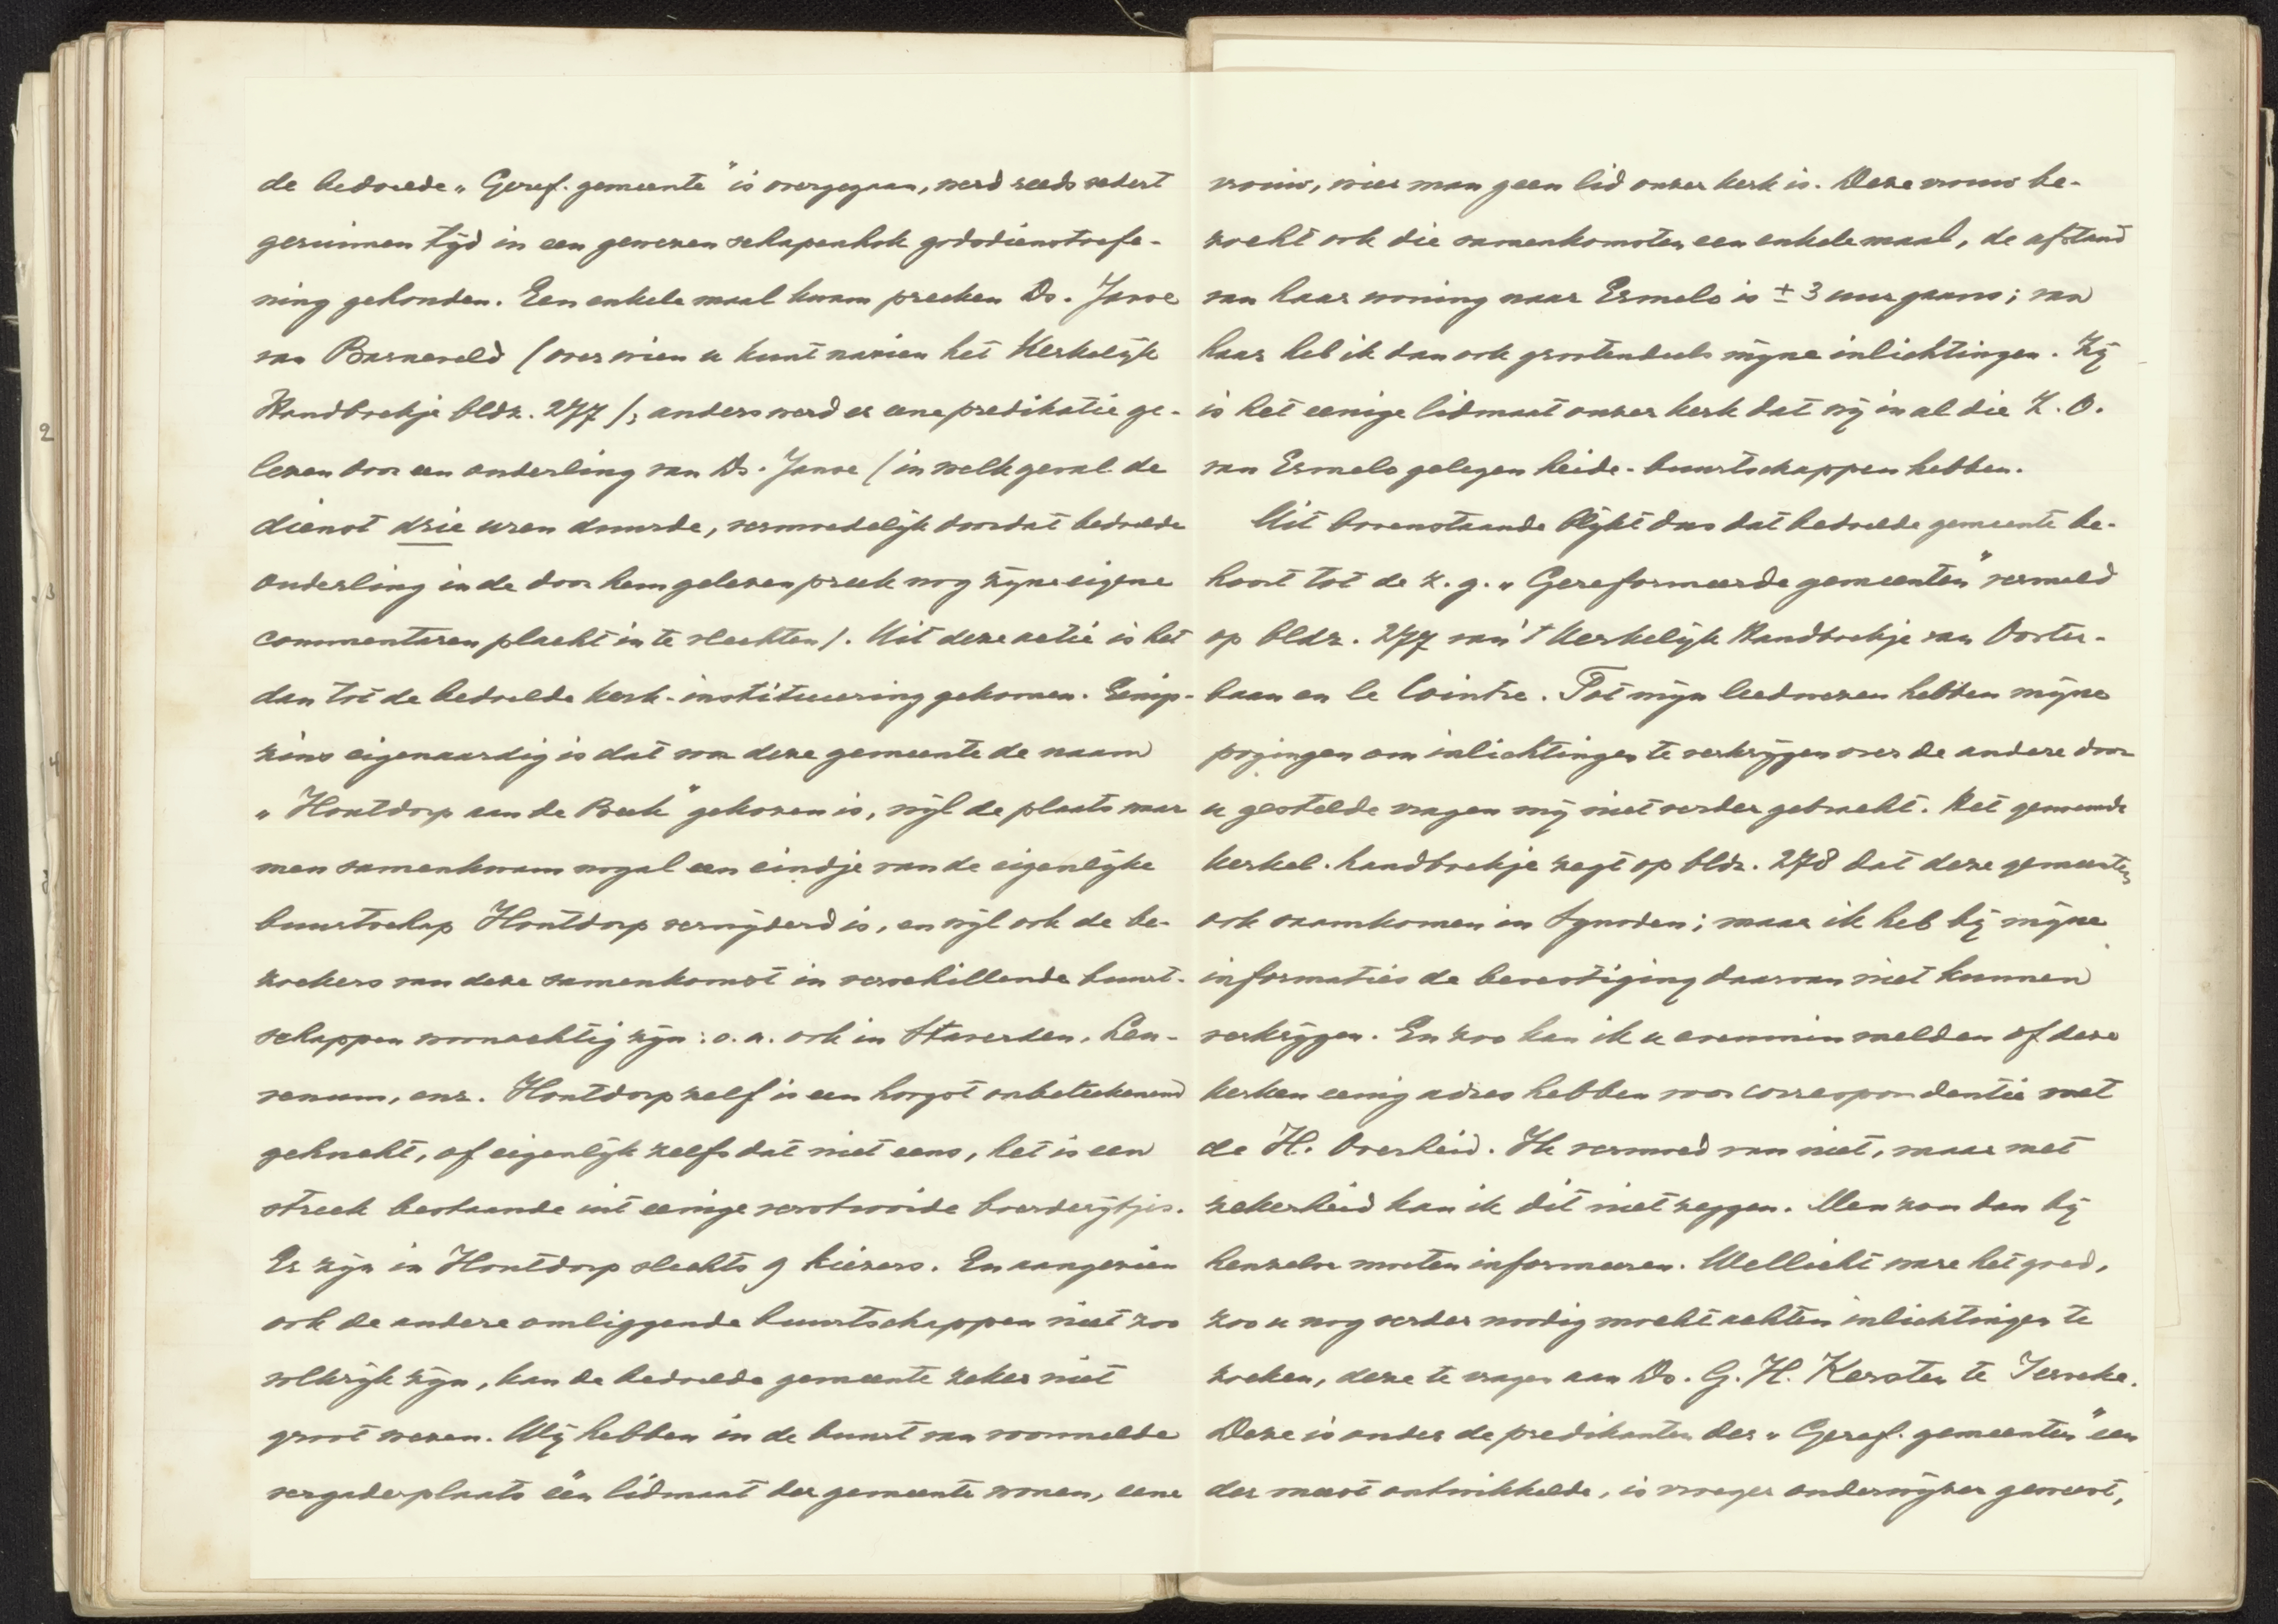 de bedoelde „Geref. gemeente" is overgegaan, werd reeds sedert
geruimen tijd in een gewezen schapenhok godsdienstoefe-
ning gehouden. Een enkele maal kwam preeken Ds. Janse
van Barneveld (over wien u kunt nazien het Kerkelijk
Handboekje bldz. 277); anders werd er eene predikatie ge-
lezen door een ouderling van Ds. Janse (in welk geval de
dienst drie uren duurde, vermoedelijk doordat bedoelde
ouderling in de door hem gelezen preek nog zijne eigene
commentaren placht in te vlechten). Uit deze actie is het
dan tot de bedoelde kerk-instituering gekomen. Eenig-
zins eigenaardig is dat voor deze gemeente de naam
„Houtdorp aan de Beek" gekozen is, wijl de plaats waar
men samenkwam nogal een eindje van de eigenlijke
buurtschap Houtdorp verwijderd is, en wijl ook de be-
zoekers van deze samenkomst in verschillende buurt-
schappen woonachtig zijn: o.a. ook in Staverden, Leu-
venum, enz. Houtdorp zelf is een hoogst onbeteekenend
gehucht, of eigenlijk zelfs dat niet eens, het is een
streek bestaande uit eenige verstrooide boerderijtjes.
Er zijn in Houtdorp slechts 9 kiezers. En aangezien
ook de andere omliggende buurtschappen niet zoo
volkrijk zijn, kan de bedoelde gemeente zeker niet
groot wezen. Wij hebben in de buurt van voormelde
vergaderplaats één lidmaat der gemeente wonen, eene
vrouw, wier man geen lid onzer kerk is. Deze vrouw be-
zocht ook die samenkomsten een enkele maal, de afstand
van haar woning naar Ermelo is ± 3 uur gaans; van
haar heb ik dan ook grootendeels mijne inlichtingen. Zij
is het eenige lidmaat onzer kerk dat wij in al die Z.O.
van Ermelo gelegen heide-buurtschappen hebben.
Uit bovenstaande blijkt dus dat bedoelde gemeente be-
hoort tot de z.g. „Gereformeerde gemeenten" vermeld
op bldz. 277 van 't Kerkelijk Handboekje van Ooster-
baan en le Cointre. Tot mijn leedwezen hebben mijne
pogingen om inlichtingen te verkrijgen over de andere door
u gestelde vragen mij niet verder gebracht. Het genoemde
Kerkel. handboekje zegt op bldz. 278 dat deze gemeenten
ook saamkomen in Synoden; maar ik heb bij mijne
informaties de bevestiging daarvan niet kunnen
verkrijgen. En zoo kan ik u evenmin melden of deze
kerken eenig adres hebben voor correspondentie met
de H. Overheid. Ik vermoed van niet, maar met
zekerheid kan ik dit niet zeggen. Men zou dan bij
henzelve moeten informeeren. Wellicht ware het goed,
zoo u nog verder noodig mocht achten inlichtingen te
zoeken, deze te vragen aan Ds. G. H. Kersten te Ierseke.
Deze is onder de predikanten der „Geref. gemeenten" een
der meest ontwikkelde, is vroeger onderwijzer geweest,
2
3
4